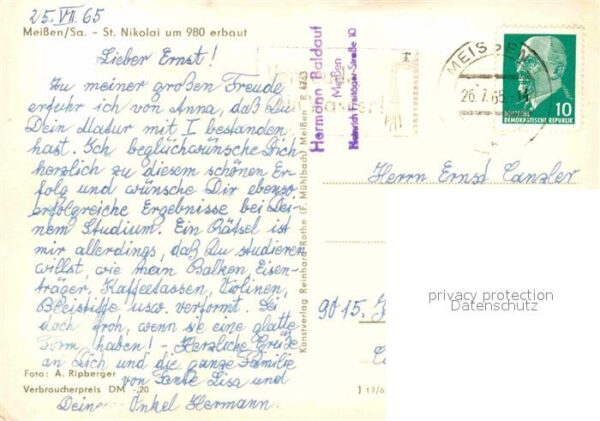 25. VII. 65
Meißen/Sa. - St. Nikolai um 980 erbaut
Lieber Ernst!
Zu meiner großen Freude
erfuhr ich von Anna, daß Du
Dein Matur mit I bestanden
hast. Ich beglückwünsche Dich
herzlich zu diesem schönen Er-
folg und wünsche Dir ebenso
erfolgreiche Ergebnisse bei Dei-
nem Studium. Ein Rätsel ist
mir allerdings, daß Du studieren
willst, wie man Balken, Eisen-
träger, Kaffeetassen, Violinen,
Bleistifte usw. verformt. Sei
doch froh, wenn sie eine glatte
Form haben! - Herzliche Grüße
an Dich und die ganze Familie
von Tante Lisa und
Deinem Onkel Hermann.
Foto: A. Ripberger
Verbraucherpreis DM -,20
Kunstverlag Reinhard Rothe (F. Mühlbach) Meißen P 6763
Hermann Baldauf
Meißen
Heinrich Freitäger-Straße 10
MEISSEN
26.7.65
10
DEUTSCHE
DEMOKRATISCHE REPUBLIK
Herrn Ernst Canzler
9015.
privacy protection
Datenschutz
J 17/6